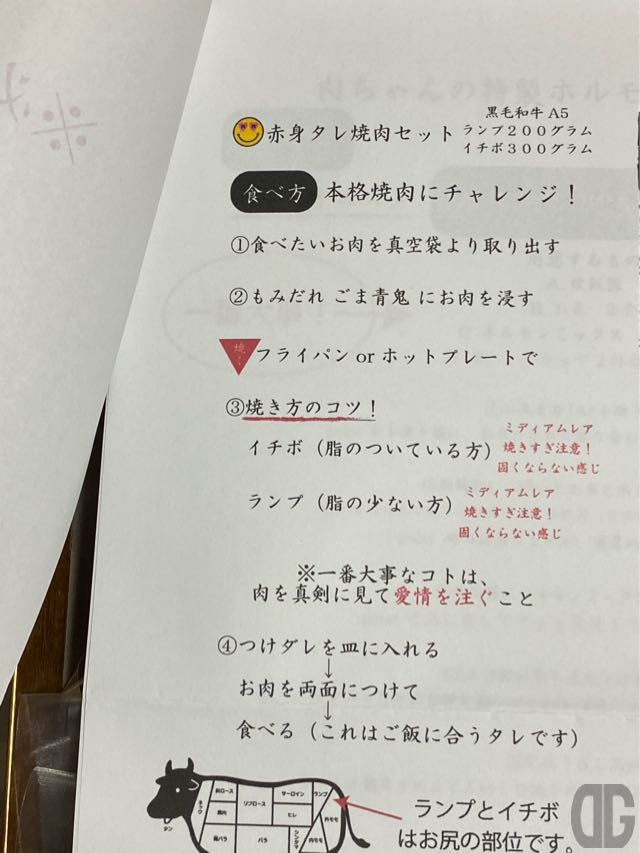 黒毛和牛 A5
赤身タレ焼肉セット ランプ200グラム
イチボ300グラム
食べ方 本格焼肉にチャレンジ！
①食べたいお肉を真空袋より取り出す
②もみだれ ごま青鬼 にお肉を浸す
焼く フライパン or ホットプレートで
③焼き方のコツ！
イチボ（脂のついている方）
ミディアムレア
焼きすぎ注意！
固くならない感じ
ランプ（脂の少ない方）
ミディアムレア
焼きすぎ注意！
固くならない感じ
※一番大事なコトは、
肉を真剣に見て愛情を注ぐこと
④つけダレを皿に入れる
↓
お肉を両面につけて
↓
食べる（これはご飯に合うタレです）
ネック
肩ロース
リブロース
サーロイン
ランプ
ヒレ
肩肉
肩バラ
バラ
シンタマ
内モモ
外モモ
タン
ランプとイチボ
はお尻の部位です。
DG